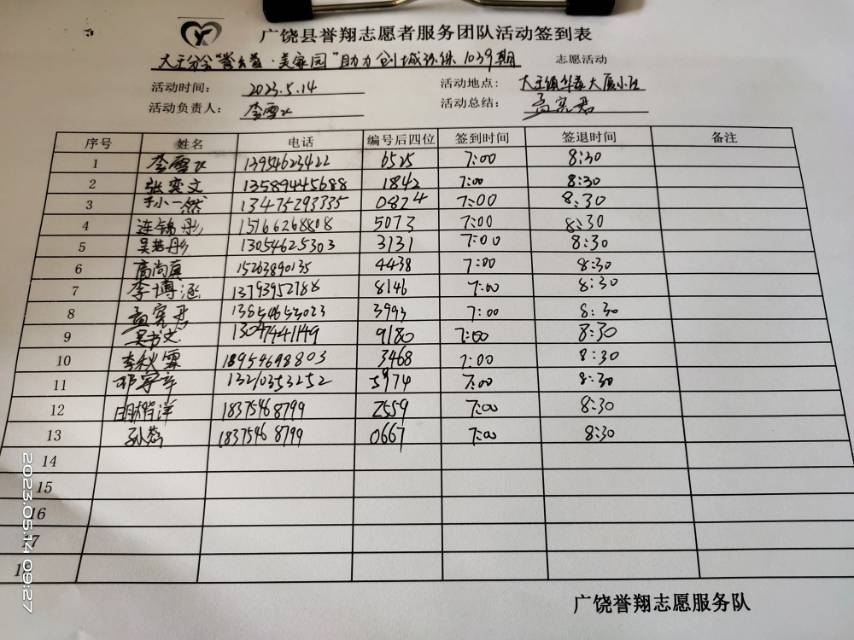 广饶县誉翔志愿者服务团队活动签到表
大王分会"誉 益·美家园"助力创城 1039期 志愿活动
活动时间: 2023.5.14 活动地点: 大王镇 大厦小区
活动负责人: 李雪 活动总结: 孟宪君
序号 姓名 电话 编号后四位 签到时间 签退时间 备注
1 李雪 13954623422 6525 7:00 8:30
2 张奕文 13589445688 1842 7:00 8:30
3 小一然 13475293335 0824 7:00 8:30
4 连锦彤 15166268808 5073 7:00 8:30
5 吴若彤 13054625303 3131 7:00 8:30
6 高尚真 15263890135 4438 7:00 8:30
7 李博涵 13793952788 8146 7:00 8:30
8 孟宪君 13854653023 3993 7:00 8:30
9 吴书文 13047441149 9180 7:00 8:30
10 李秋霖 18954698803 3468 7:00 8:30
11 13210353252 5974 7:00 8:30
12 洋 18375468799 2559 7:00 8:30
13 孙 18375468799 0667 7:00 8:30
14
15
16
17
广饶誉翔志愿服务队
2023.05.14 09:27